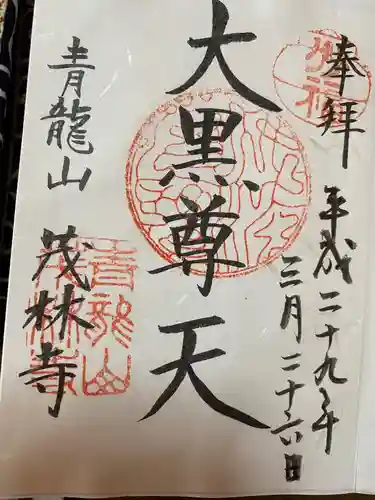 奉拝
平成二十九年
三月二十六日
大黒尊天
青龍山
茂林寺